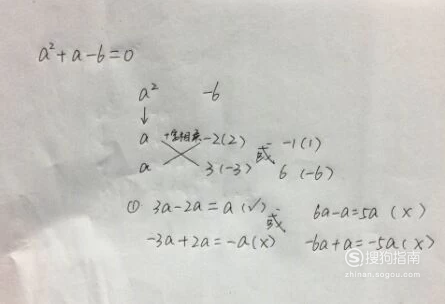 a²+a-6=0
a² -6
↓
a 十字相乘 -2(2) 或 -1(1)
a 3(-3) 6(-6)
① 3a-2a=a(√) 或 6a-a=5a(×)
-3a+2a=-a(×) -6a+a=-5a(×)
搜狗指南
zhinan.sogou.com